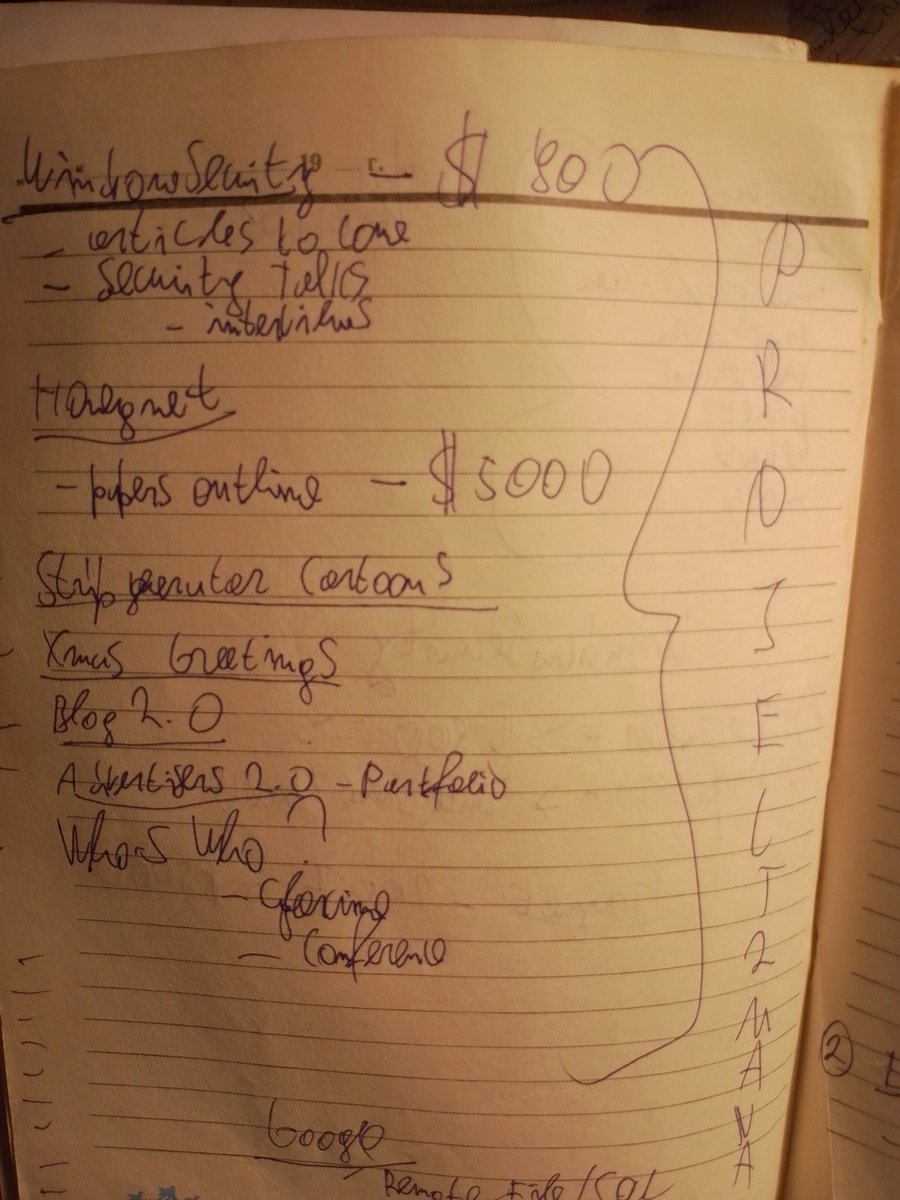 WindowSecurity - $ 800
- articles to come
- Security Talks
- interviews
Honeynet
- papers outline - $5000
Strip generator Cartoons
Xmas Greetings
Blog 2.0
Advertisers 2.0 - Portfolio
Who-s Who?
- Conference
Google
Remote File/
PROJECT2MANA
2